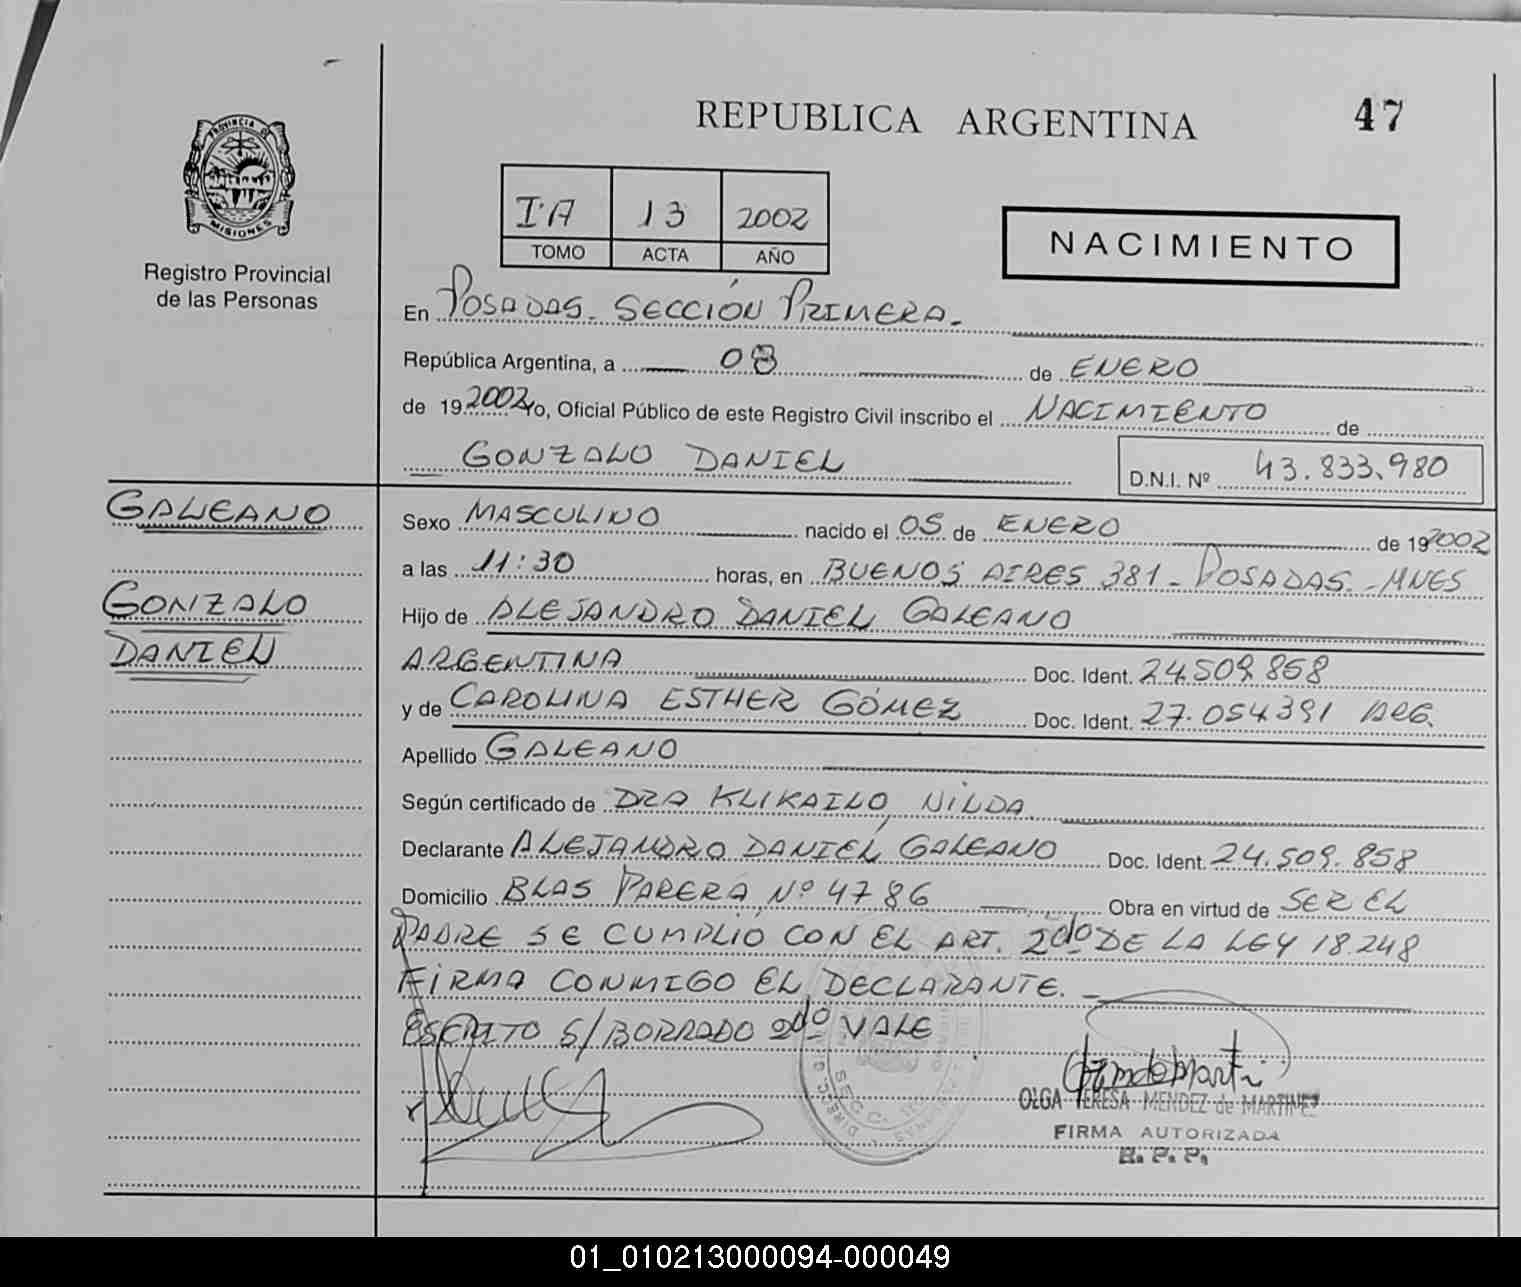 REPUBLICA ARGENTINA
47
PROVINCIA DE
MISIONES
Registro Provincial
de las Personas
IºA 13 2002
TOMO ACTA AÑO
NACIMIENTO
En POSADAS. SECCIÓN PRIMERA.
República Argentina, a 08 de ENERO
de 19 2002 Yo, Oficial Público de este Registro Civil inscribo el NACIMIENTO de
GONZALO DANIEL
D.N.I. Nº 43.833.980
GALEANO
GONZALO
DANIEL
Sexo MASCULINO nacido el 05 de ENERO de 19 2002
a las 11:30 horas, en BUENOS AIRES 381 - POSADAS. - MNES
Hijo de ALEJANDRO DANIEL GALEANO
ARGENTINA Doc. Ident. 24.509.858
y de CAROLINA ESTHER GÓMEZ Doc. Ident. 27.054.391 ARG.
Apellido GALEANO
Según certificado de DRA KLIKAILO, NILDA.
Declarante ALEJANDRO DANIEL GALEANO Doc. Ident. 24.509.858
Domicilio BLAS PARERA Nº 4786 Obra en virtud de SER EL
PADRE SE CUMPLIO CON EL ART. 2do DE LA LEY 18.248
FIRMA CONMIGO EL DECLARANTE. -
ESCRITO S/BORRADO 2do VALE
OLGA TERESA MENDEZ de MARTINEZ
FIRMA AUTORIZADA
R. P. P.
01_010213000094-000049